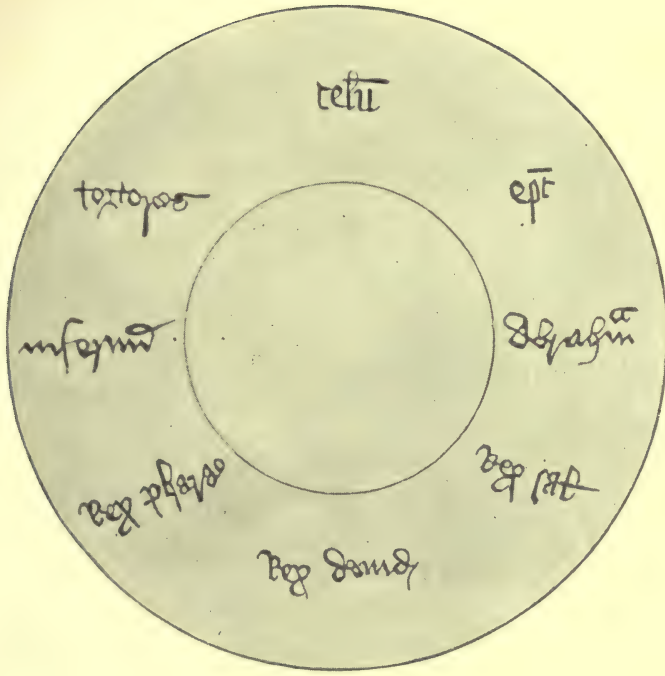 celū
ep̄c
Abraham
Rex sal
Rex dauid
Rex pharao
infernū
tortores